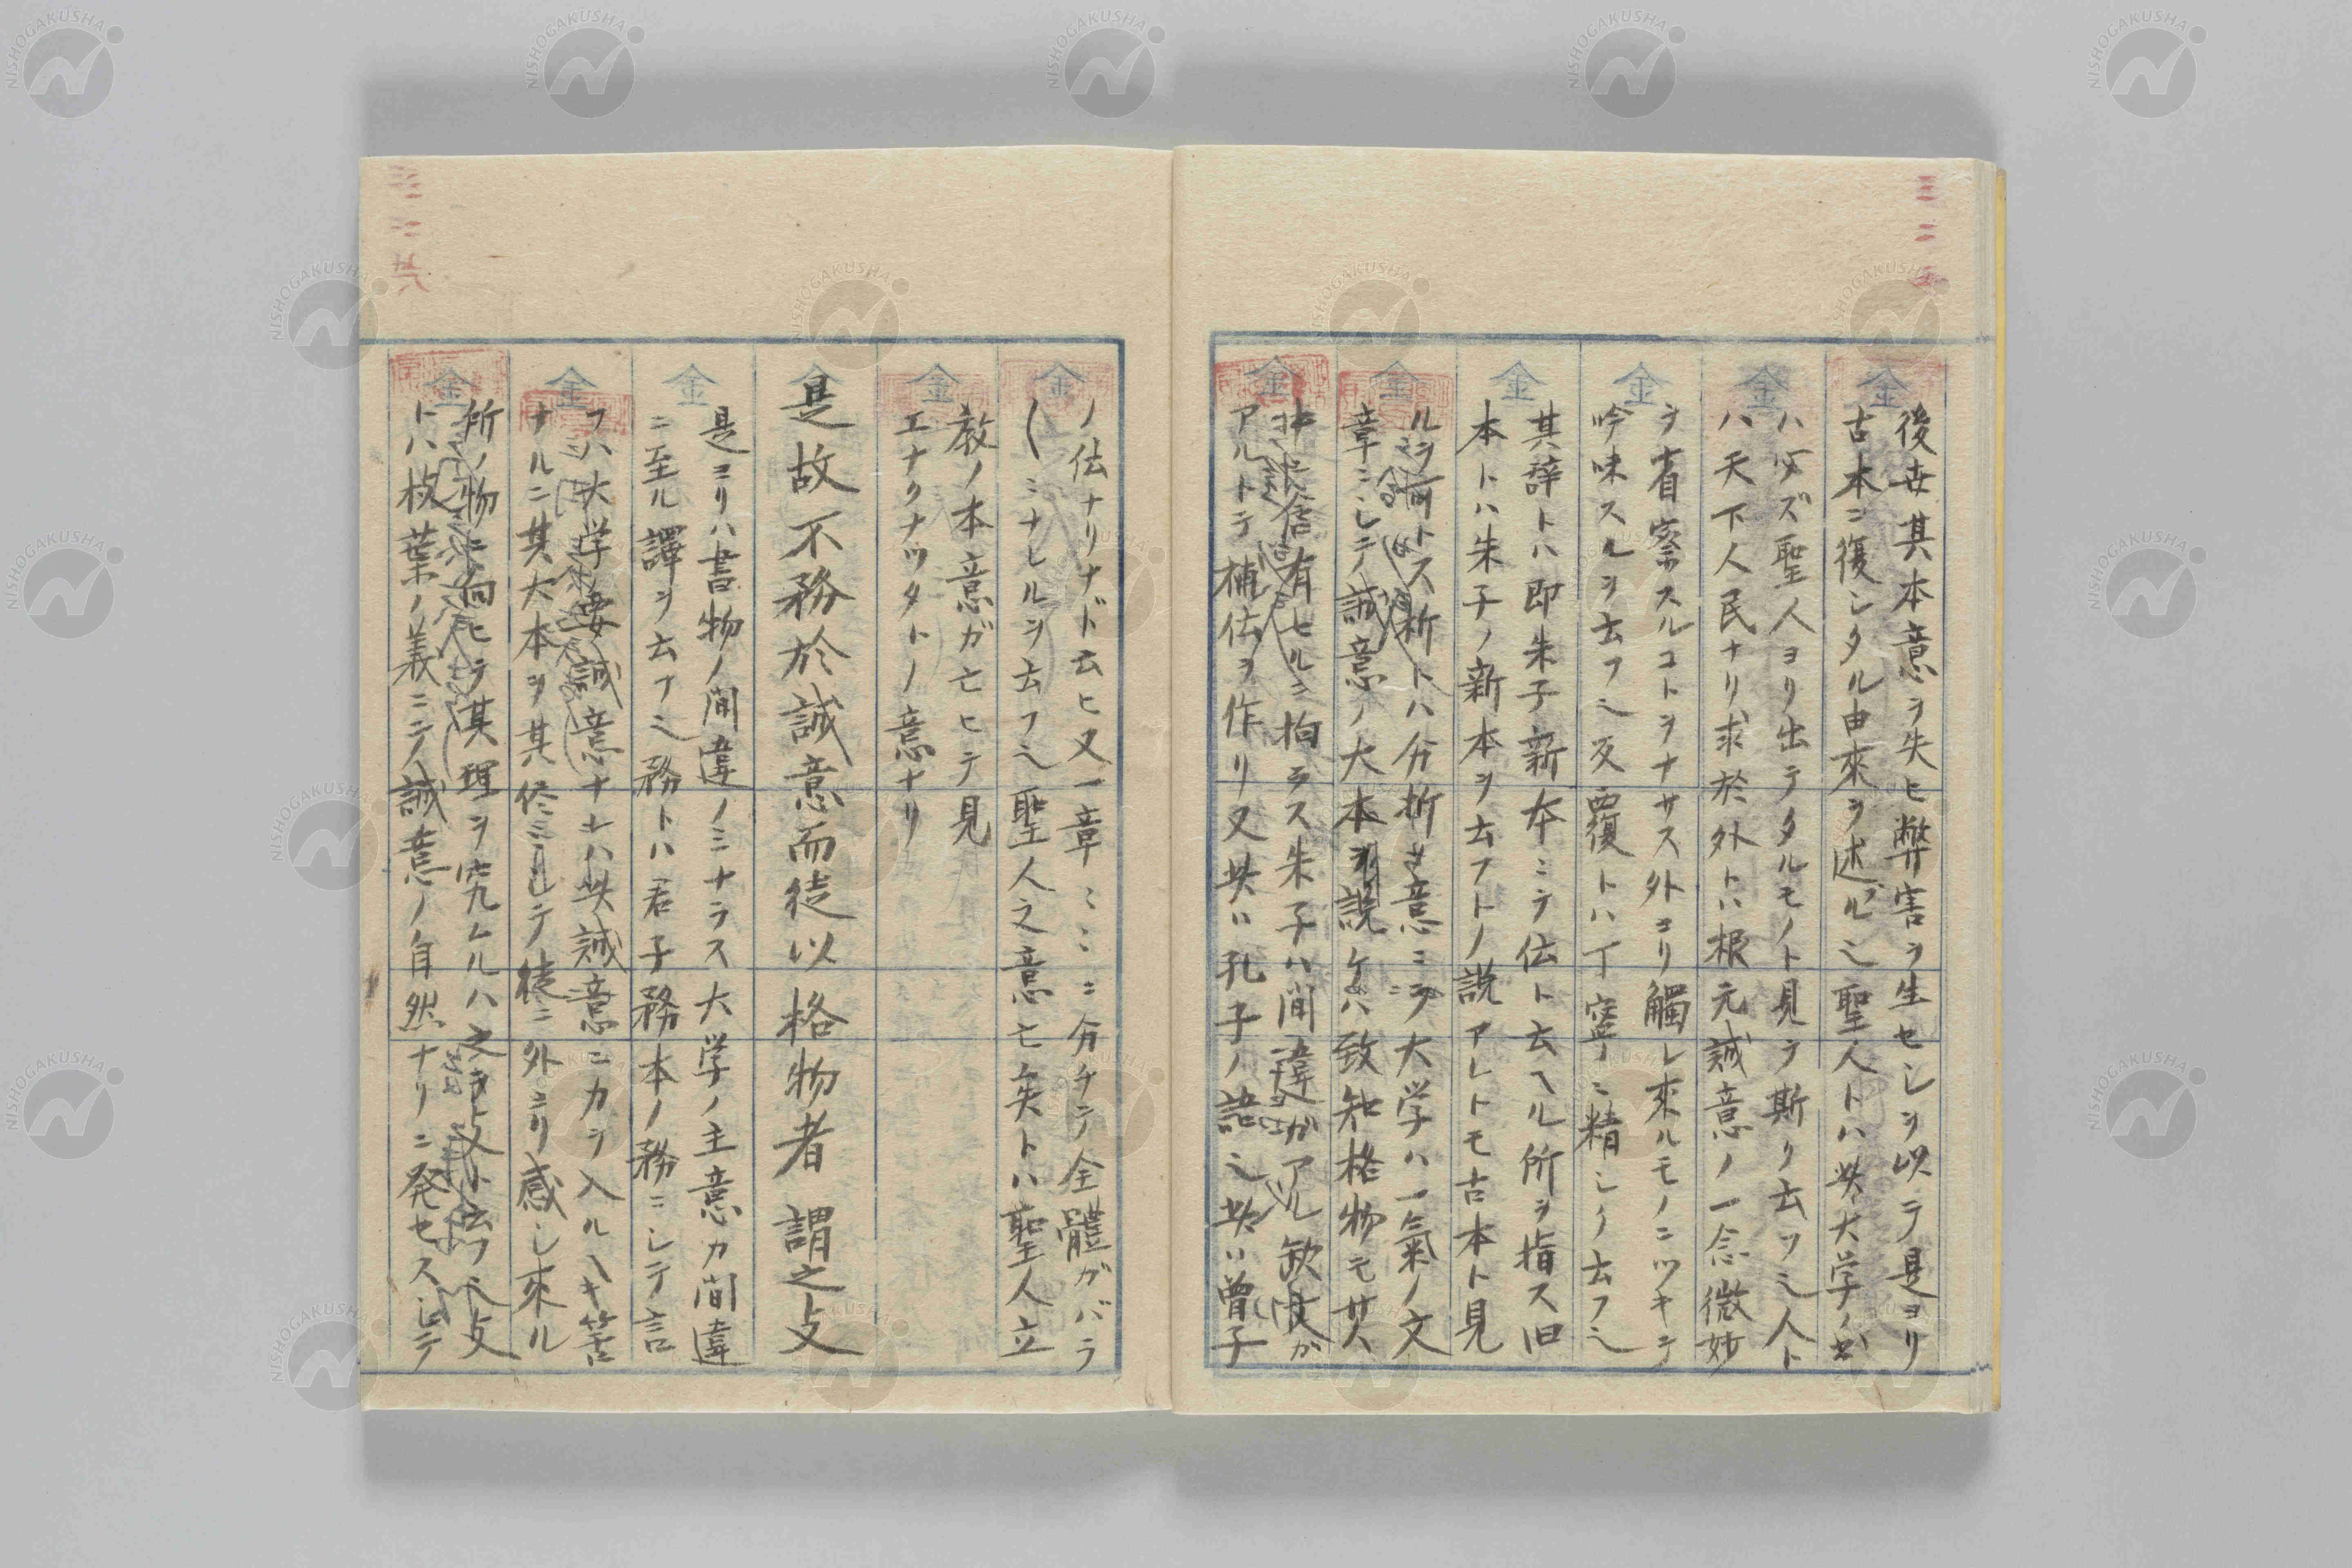 三二五
後世其本意ヲ失ヒ弊害ヲ生セシヲ以テ是ヨリ
古本ニ復シタル由來ヲ述ブル也聖人トハ此大学ノ書
ハ必ズ聖人ヨリ出テタルモノト見テ斯ク云フ也人ト
ハ天下人民ナリ求於外トハ根元誠意ノ一念微妙
ヲ省察スルコトヲナサス外ヨリ觸レ來ルモノニツキテ
吟味スルヲ云フ也反覆トハ丁寧ノ上ニ精シク云フ也
其辞トハ即朱子新本ニテ伝ト云ヘル所ヲ指ス旧
本トハ朱子ノ新本ヲ云フトノ説アレトモ古本ト見
ルヲ トス析トハ分析 意ニ 大学ハ一氣ノ文
章ニシテ誠意ノ大本 説ケハ致知格物モ其
有セルニ拘ラス朱子ハ間違ガアル欠 ガ
アルトテ補伝ヲ作リ又此ハ孔子ノ語也此ハ曽子
三二六
ノ伝ナリナド云ヒ又一章ミミニ分チテ全體ガバラ
〱ミナヒルヲ云フ也聖人之意亡矣トハ聖人立
教ノ本意ガ亡ヒテ見
エナクナツタトノ意ナリ
是故不務於誠意而徒以格物者謂之支
是ヨリハ書物ノ間違ノミナラス大学ノ主意カ間違
ニ至ル譯ヲ云フ也務トハ君子務本ノ務ニシテ言
フハ大学ノ要誠意ナレハ此誠意ニカヲ入ルヘキ筈
ナルニ其大本ヲ其侭ミシテ徒ニ外ヨリ感シ來ル
所ノ物ニ向ヒテ其理ヲ究ムルハ之ヲ支ト云フ也支
トハ枝葉ノ義ニテ誠意ノ自然ナリニ発セスシテ